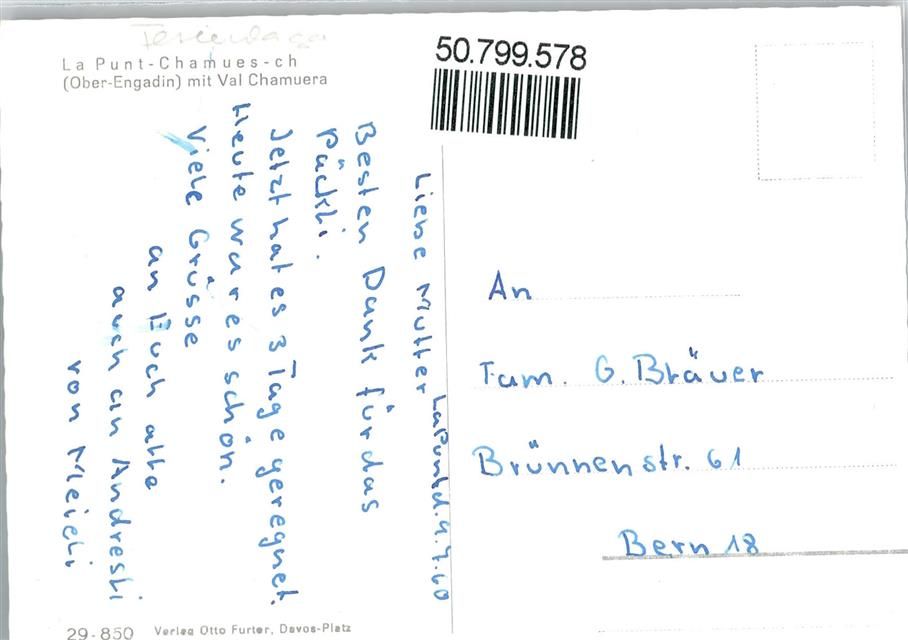 La Punt-Chamues-ch
(Ober-Engadin) mit Val Chamuera
50.799.578
La Punt d. 4.7.60
Liebe Mutter
Besten Dank für das
Päckli.
Jetzt hat es 3 Tage geregnet.
Heute war es schön.
Viele Grüsse
an Euch alle
auch an Andresli
von Meieli
An
Fam. G. Bräuer
Brünnenstr. 61
Bern 18
29-850 Verlag Otto Furter, Davos-Platz